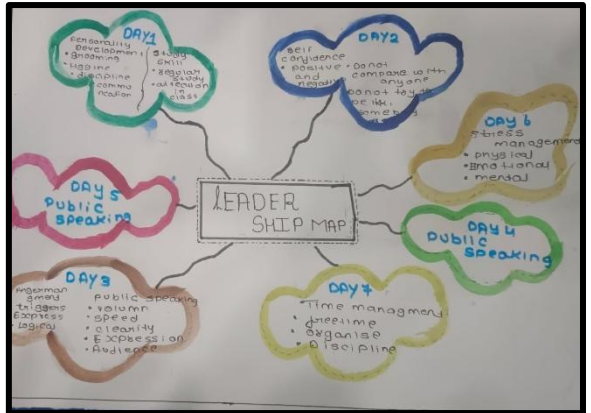 DAY1
Personality
Development
• Grooming
• Hygine
• discipline
• commu
nication
Study
skill
• Regular
study
• attection
in
class
DAY2
Self
confidence
• Positive
and
negative
• Do not
compare with
anyone
• Do not try to
be like
somebody
DAY 6
Stress
management
• Physical
• Emotional
• mental
DAY5
Public
Speaking
LEADER
SHIP MAP
DAY4
Public
Speaking
DAY3
Angerman
agment
triggers
Express
• Logical
Public speaking
• volumn
• speed
• clearity
• Expression
• Audience
DAY7
Time managment
• freetime
• organise
• Discipline